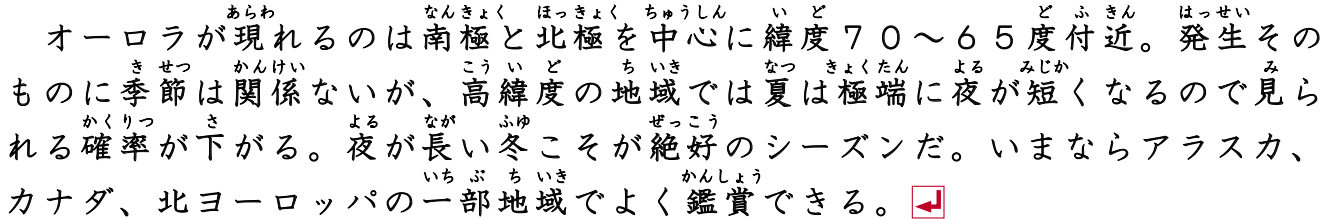 オーロラが現れるのは南極と北極を中心に緯度７０～６５度付近。発生その
ものに季節は関係ないが、高緯度の地域では夏は極端に夜が短くなるので見ら
れる確率が下がる。夜が長い冬こそが絶好のシーズンだ。いまならアラスカ、
カナダ、北ヨーロッパの一部地域でよく鑑賞できる。